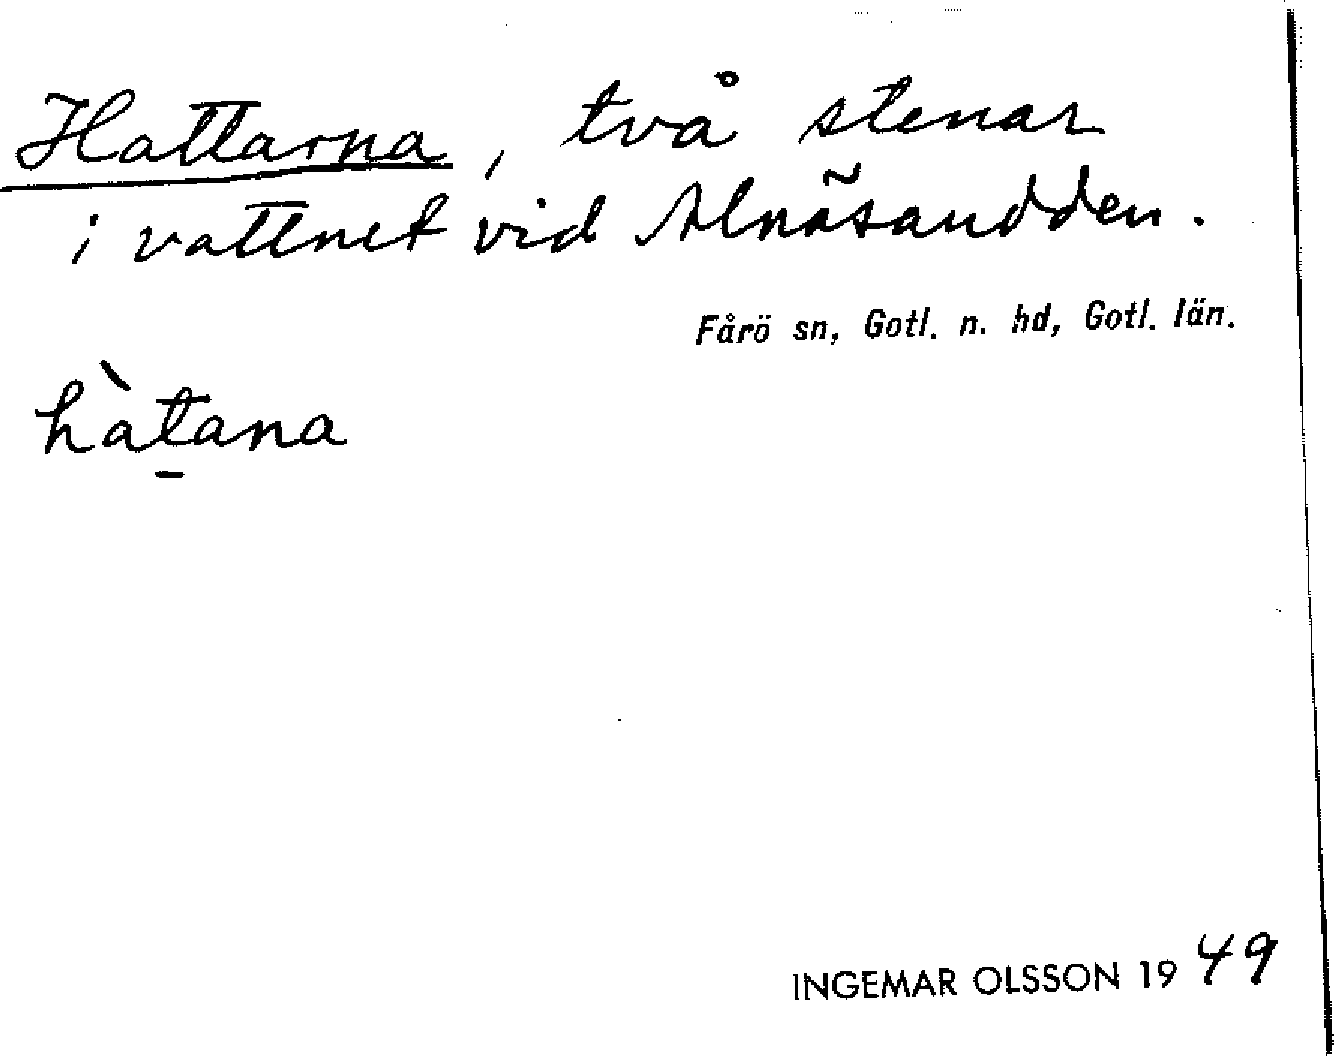 Hattarna, två stenar
i vattnet vid Alnäsaudden.
Fårö sn, Gotl. n. hd, Gotl. län.
hàt̲ana
INGEMAR OLSSON 1949